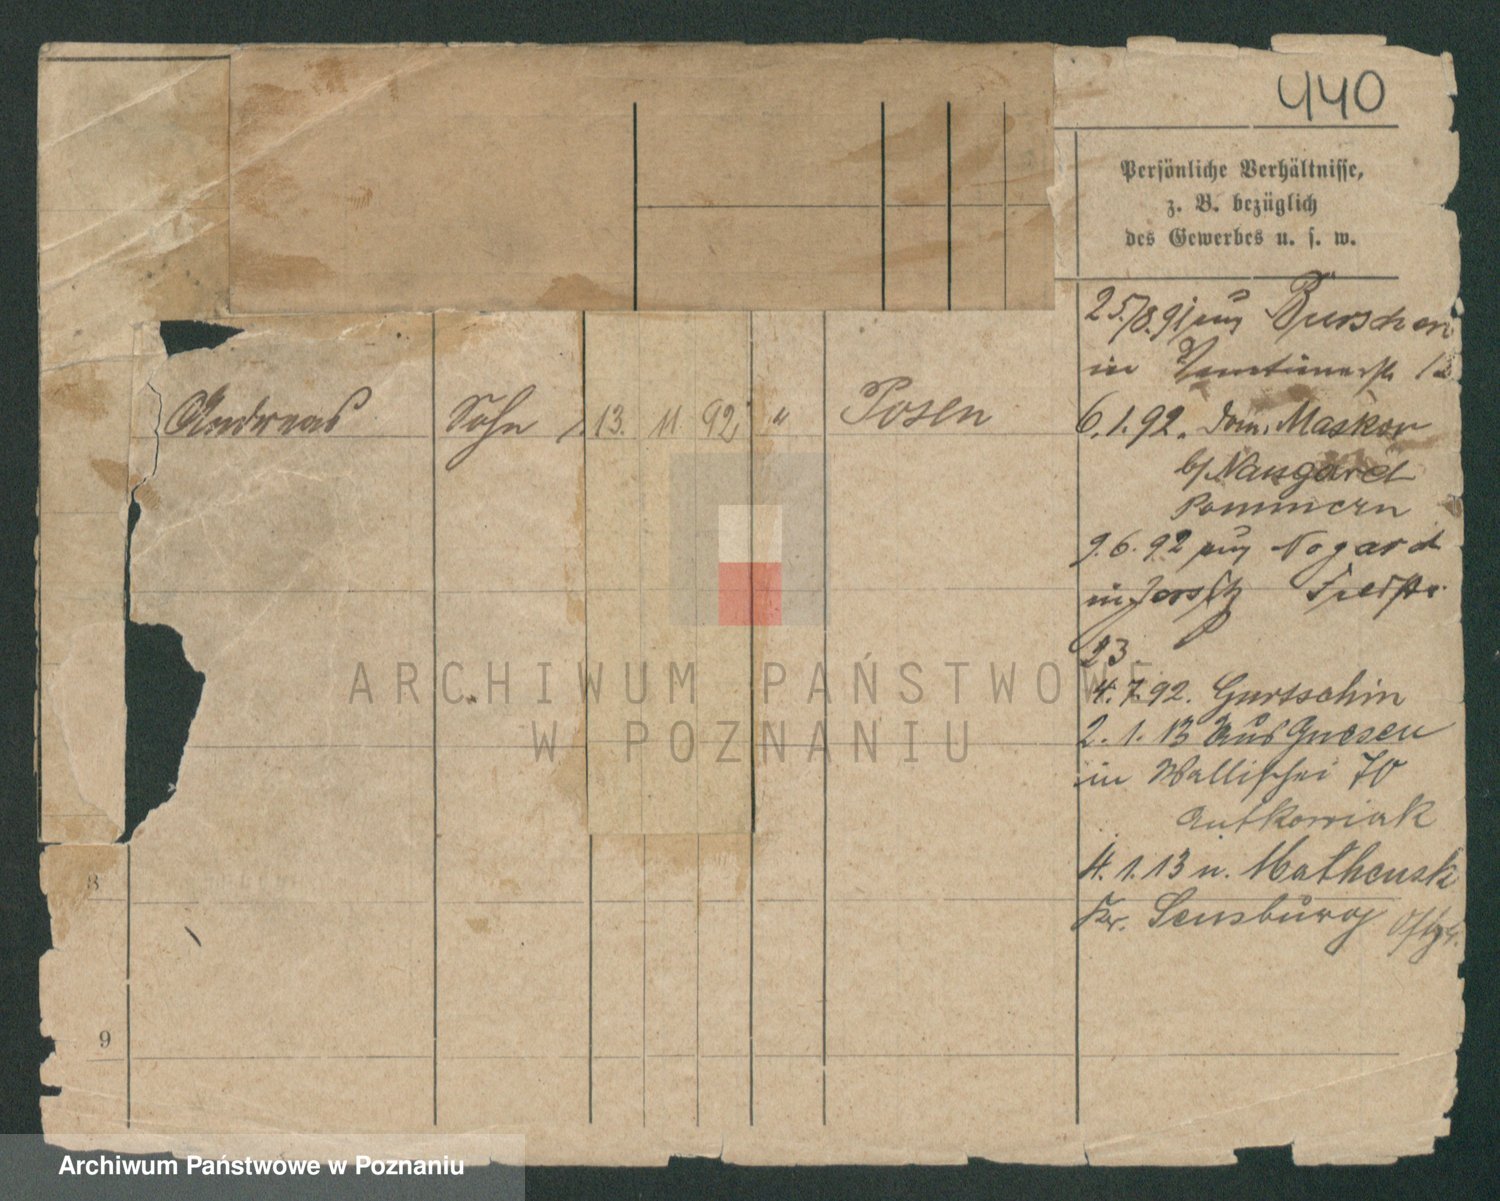 440
Persönliche Verhältnisse,
z. B. bezüglich
des Gewerbes u. s. w.
Andreas Sohn 13. 11. 92 " Posen
25./8.91
in
6.1.92. Dom. Maskow
b/ Naugard
Pommern
9.6.92 Nogard
in Jersitz
23
4.7.92. Gurtschin
2.1.13 aus Gnesen
in Wallischei 70
Antkowiak
4.1.13 n.
Kr. Sensburg Ostpr.
8
9
ARCHIWUM PAŃSTWOWE
W POZNANIU
Archiwum Państwowe w Poznaniu